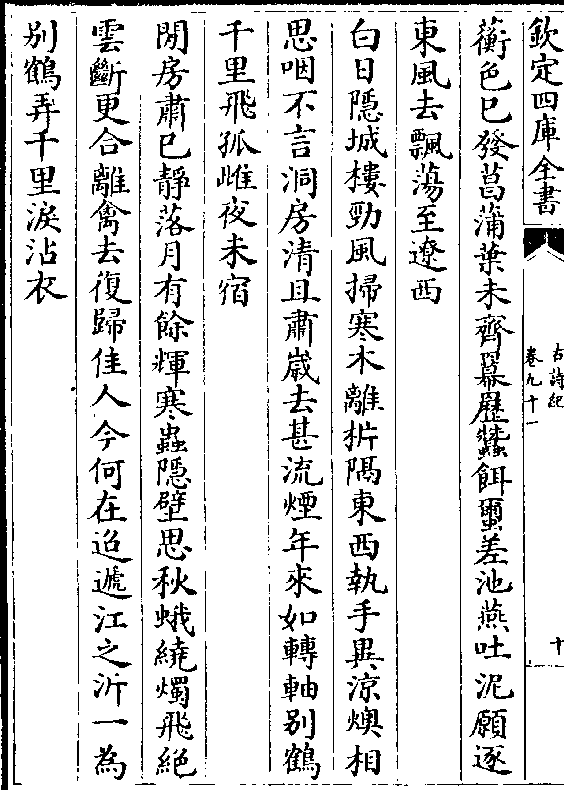 欽定四庫全書
古詩紀
卷九十一
十
蘅色已發菖蒲葉未齊羃歷蠶餌蠒差池燕吐泥願逐
東風去飄蕩至遼西
白日隱城樓勁風掃寒木離析隅東西執手異涼燠相
思咽不言洞房清且肅歲去甚流煙年來如轉軸别鶴
千里飛孤雌夜未宿
閒房肅已靜落月有餘輝寒蟲隱壁思秋蛾繞燭飛絶
雲斷更合離禽去復歸佳人今何在迢遞江之沂一為
别鶴弄千里淚沾衣